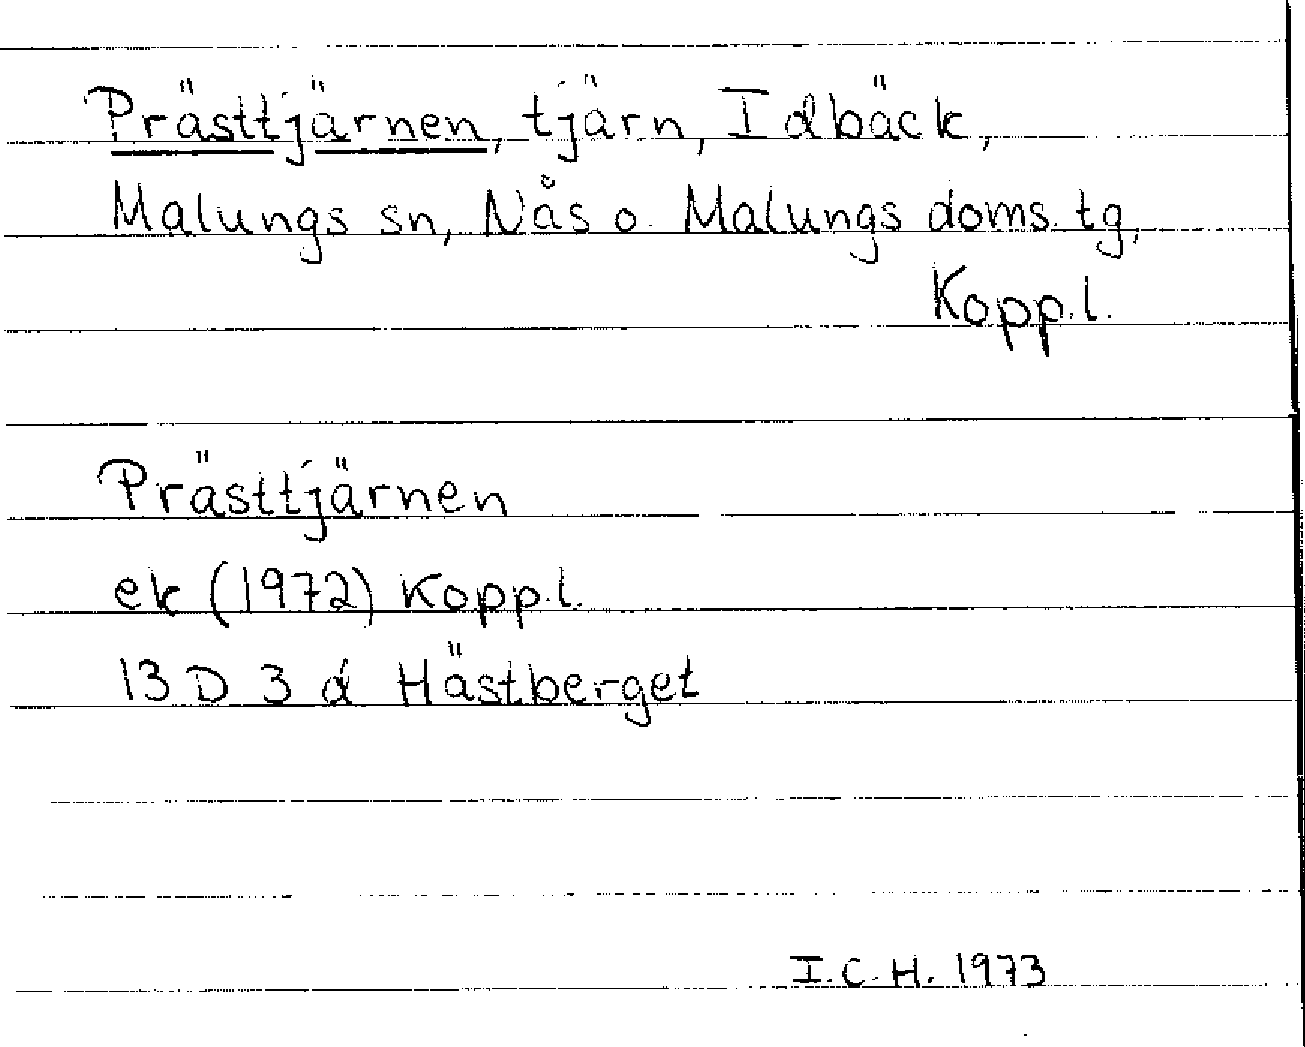 Prästtjärnen, tjärn, Idbäck,
Malungs sn, Nås o. Malungs doms. tg,
Kopp.l.
Prästtjärnen
ek (1972) Kopp.l.
13 D 3 d Hästberget
I.C.H. 1973